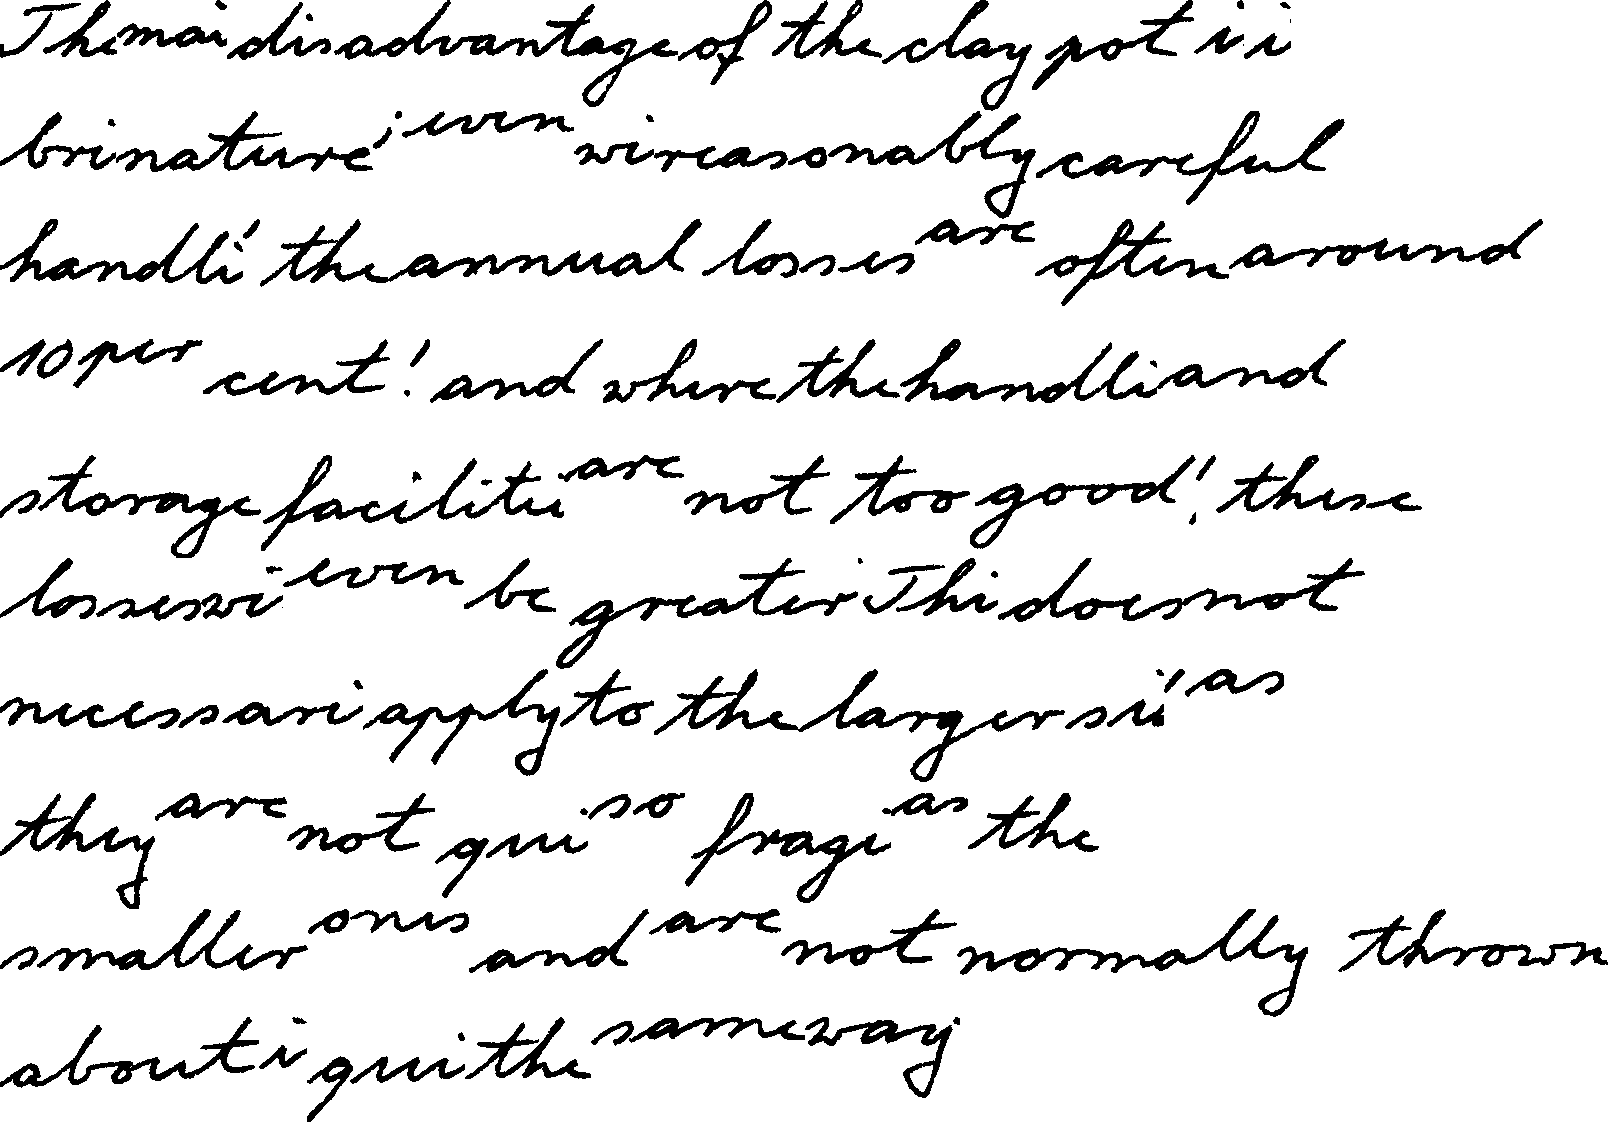 The mai disadvantage of the clay pot i i
bri nature ; even wi reasonably careful
handli , the annual losses are often around
10 per cent ! and where the handli and
storage faciliti are not too good ! , these
losses wi even be greater Thi does not
necessari apply to the larger si ! as
they are not qui so fragi as the
smaller ones and are not normally thrown
about i qui the same way